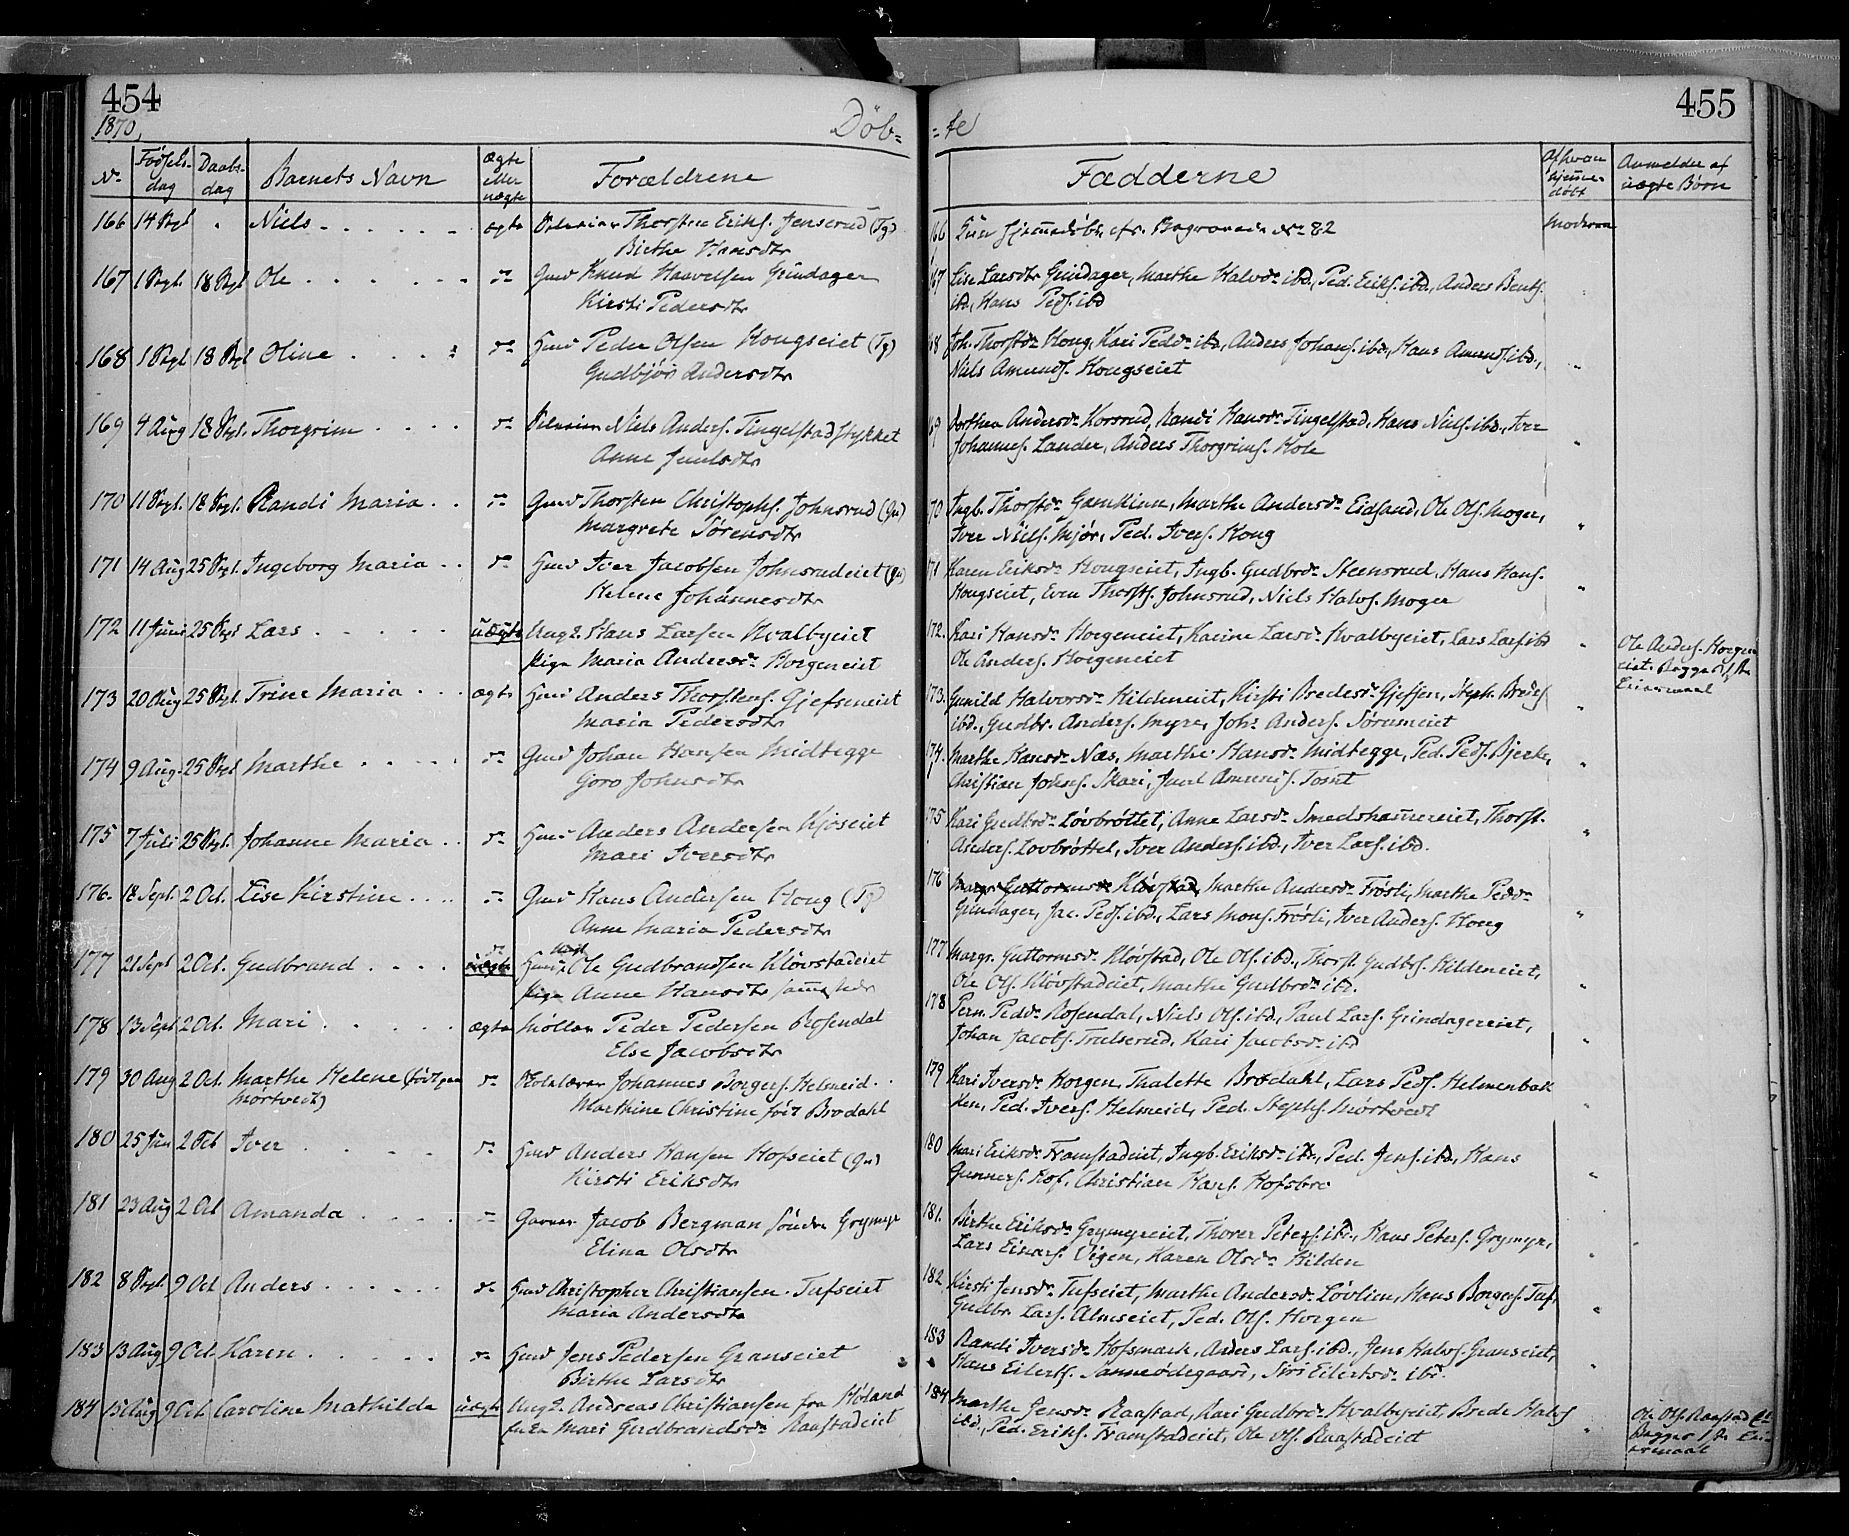 454
1870,
Döb-
No
Fødsels-dag
Daabs-dag
Barnets Navn
ægte eller uægte
Forældrene
166 14 Sept " Niels ægte Thorsten Eriks. Jenserud (Tg)
Birthe Hansdtr
167 1 Sept. 18 Sept Ole do Gmd Knud Haavelsen Grindager
Kirsti Pedersdtr
168 1 Sept 18 Sept Oline do Hmd Peder Olsen Hougseiet (Tg)
Gudbjør Andersdtr
169 4 Aug 18 Sept. Thorgrim do Niels Anders. Tingelstadstykket
Anne Juulsdtr
170 11 Sept. 18 Sept. Randi Maria do Gmd Thorsten Christophs. Johnsrud (Gr)
Margrete Sørensdtr
171 14 Aug 25 Sept. Ingeborg Maria do Hmd Iver Jacobsen Johnsrudeiet (Gr)
Helene Johannesdtr
172 11 Juni 25 Sept Lars uægte Ung. Hans Larsen Hvalbyeiet
Pige Maria Andersdr Horgeneiet
173 20 Aug 25 Sept. Trine Maria ægte Hmd Anders Thorstens. Gjefseneiet
Maria Pedersdtr
174 9 Aug. 25 Sept Marthe do Gmd Johan Hansen Midtegge
Goro Johnsdtr
175 7 Juli 25 Sept. Johanne Maria do Hmd Anders Andersen Kjoseiet
Mari Iversdtr
176. 18 Sept. 2 Oct. Lise Kirstine do Gmd Hans Andersen Houg (Tg)
Anne Maria Pedersdtr
177 21 Sept 2 Oct. Gudbrand do uægte Hmd Ole Gudbrandsen Kløvstadeiet
Pige Anne Hansdtr
178 13 Sept 2 Oct. Mari ægte Møller Peder Pedersen Rosendal
Else Jacobsdtr
179 30 Aug 2 Oct. Marthe Helene (født paa do Skolelærer Johannes Borgers. Helmeid
Mørtvedt) Marthine Christine født Brodahl
180 25 Jun 2 Oct Iver do Hmd Anders Hansen Hofseiet (Gr)
Kirsti Eriksdtr
181 23 Aug 2 Oct Amanda do Garver Jacob Bergman søndre Grymyr
Elina Olsdtr
182 8 Sept. 9 Oct Anders do Hmd Christopher Christiansen Tufseiet
Maria Andersdtr
183 13 Aug 9 Oct. Karen do Hmd Jens Pedersen Granseiet
Birthe Larsdtr
184 15 Aug 9 Oct Caroline Mathilde uægte Ung. Andreas Christiansen fra Høland
Mari Gudbrandsdr Raastadeiet
455
=te
Fadderne
Af hvem hjemme-døbt
Anmelder af uægte Børn
166 hjemmedøbt, cfr. No 82 Moderen
167 Lise Larsdtr Grindager, Marthe Halvdr ibd., Ped. Eriks. ibd., Anders Bents.
ibd., Hans Peds. ibd
168 Joh. Thorstdr Houg, Kari Peddr ibd, Anders Johans. ibd., Hans Amunds. ibd.,
Niels Amunds. Hougseiet
169 Dorthea Andersdr Korsrud, Randi Hansdr Tingelstad, Hans Niels. ibd., Iver
Johannes. Lander, Anders Thorgrims. Hole
170 Ingb. Thorstdr Gamkinn, Marthe Andersdr Eidsand, Ole Ols. Moger,
Iver Niels. Mjør, Ped. Ivers. Houg
171 Karen Eriksdr Hougseiet, Ingb. Gudbrdr Steensrud, Hans Hans.
Hougseiet, Even Thorsts. Johnsrud, Niels Halvs. Moger
172. Kari Hansdr Horgeneiet, Karine Larsdr Hvalbyeiet, Lars Lars. ibd
Ole Anders. Horgeneiet
Ole Anders. Horgen
eiet
173. Gunild Halvorsdr Hildeneiet, Kirsti Bredesdr Gjefsen, Steph. Bredes.
ibd., Gudbr. Anders. Myre, Johs Anders. Sørumeiet
174. Marthe Hansdr Næs, Marthe Hansdr Midtegge, Ped. Peds. Bjerke,
Christian Johns. Skari, Juul Amunds. Tomt
175 Kari Gudbrdr Løvbrøttet, Anne Larsdr Smedshammereiet, Thorst.
Anders. Løvbrøttet, Iver Anders. ibd., Iver Lars. ibd.
176 Margr Guttormsdr Kløvstad, Marthe Andersdr Frøsli, Marthe Peddr
Grindager, Jac. Peds. ibd., Lars Mons. Frøsli, Iver Anders. Houg
177 Margr. Guttormsdr Kløvstad, Ole Ols. ibd., Thorst. Gudbs. Hildeneiet,
Ole Ols. Kløvstadeiet, Marthe Gudbrdr ibd.
178 Pern. Peddr Rosendal, Niels Ols. ibd., Paul Lars. Grindagereiet,
Johan Jacobs. Trulserud, Kari Jacobsdr ibd
179 Kari Iversdr Horgen, Thalette Brodahl, Lars Peds. Helmenbak
ken, Ped. Ivers. Helmeid, Ped. Stephs. Mørtvedt
180 Mari Eriksdr Framstadeiet, Ingb. Eriksdr ibd., Ped. Jens. ibd., Hans
Gunners. Hof, Christian Hans. Hofsbro
181. Birthe Eriksdr Grymyreiet, Thorer Peters. ibd., Hans Peters. Grymyr,
Lars Einars. Vigen, Karen Olsdr Hilden
182 Kirsti Jensdr Tufseiet, Marthe Andersdr Løvlien, Hans Borgers. Tuf,
Gudbr. Lars. Almseiet, Ped. Ols. Horgen
183 Randi Iversdr Hofsmark, Anders Lars. ibd., Jens Halvs. Granseiet,
Hans Eilerts. Sanneødegaard, Siri Eilertsdr ibd.
184 Marthe Jensdr Raastad, Kari Gudbrdr Hvalbyeiet, Brede Halvs
ibd., Ped. Eriks. Framstadeiet, Ole Ols. Raastadeiet
Ole Ols. Raastad